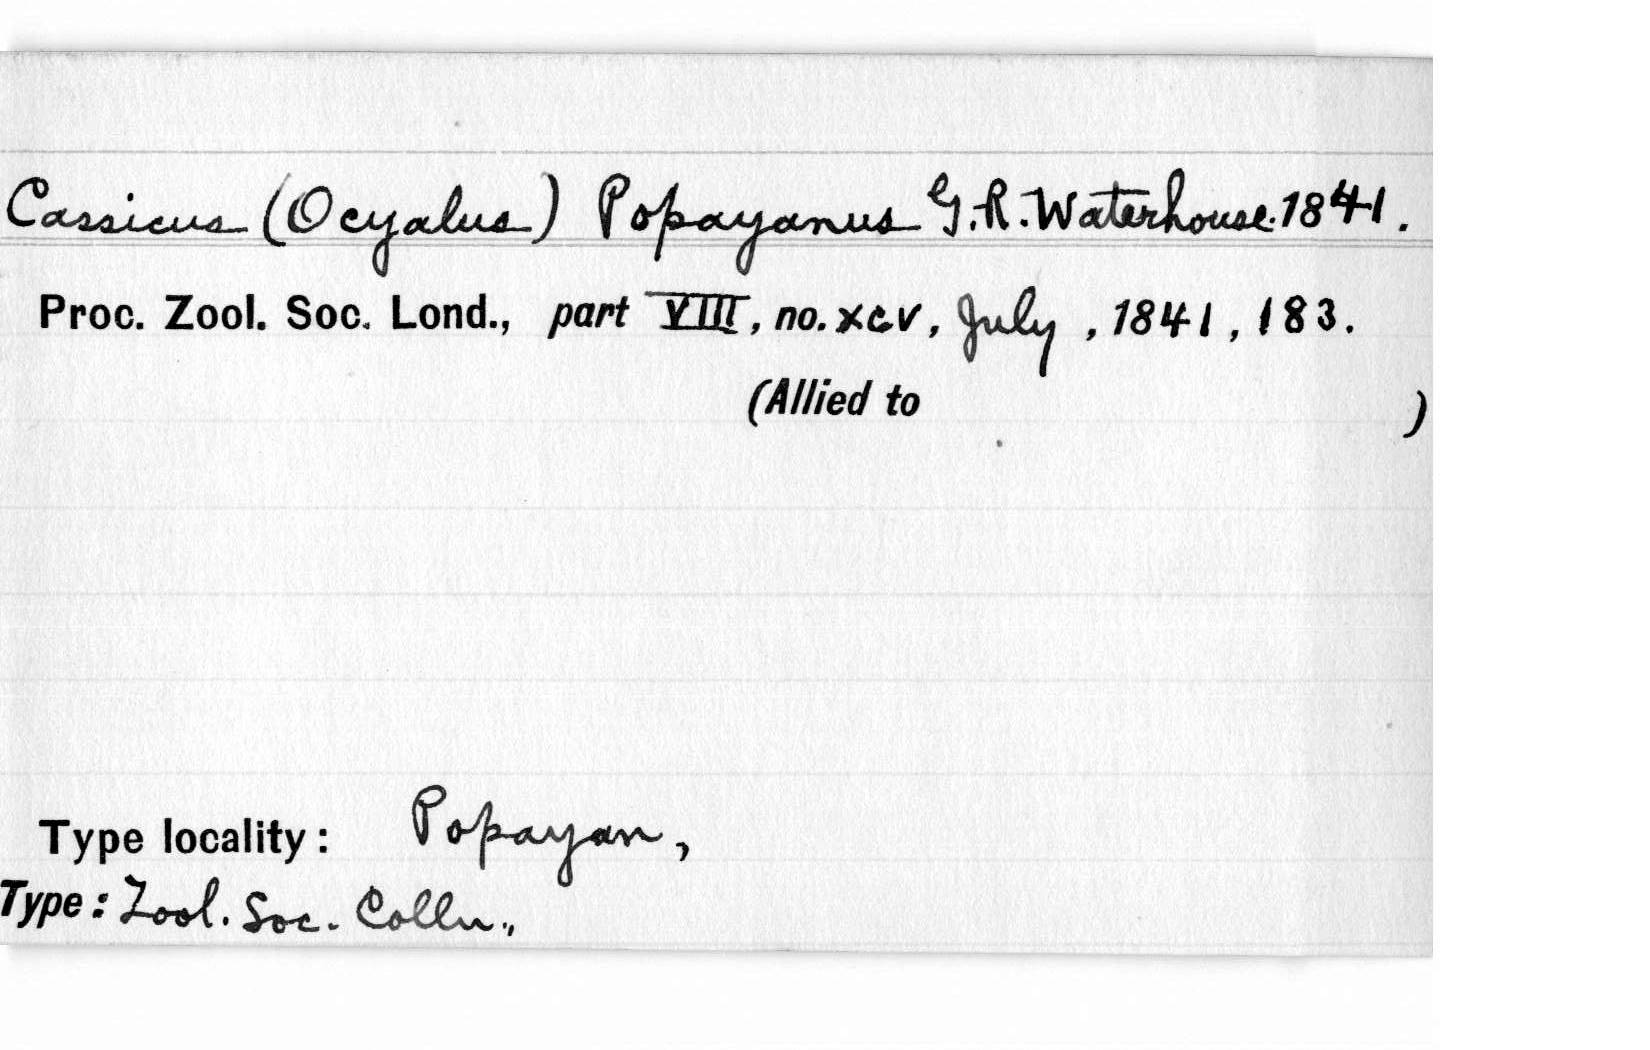 Cassicus (Ocyalus) Popayanus G.R. Waterhouse. 1841.
Proc. Zool. Soc. Lond., part VIII, no. xcv, July, 1841, 183.
(Allied to )
Type locality: Popayan,
Type: Zool. Soc. Colln.,